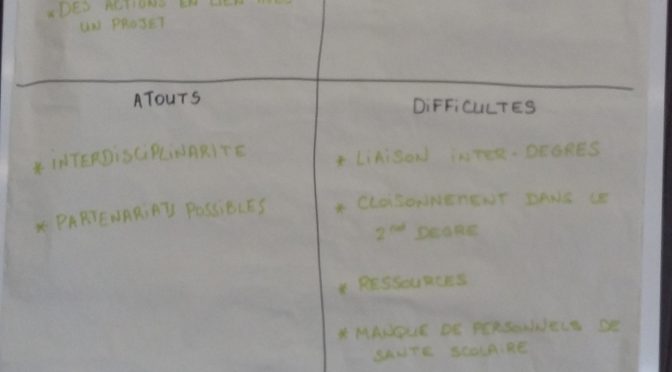 * DES ACTIONS EN LIEN AVEC
UN PROJET
ATOUTS
* INTERDISCIPLINARITE
* PARTENARIATS POSSIBLES
DIFFICULTES
* LIAISON INTER-DEGRES
* CLOISONNEMENT DANS LE
2nd DEGRE
* RESSOURCES
* MANQUE DE PERSONNELS DE
SANTE SCOLAIRE